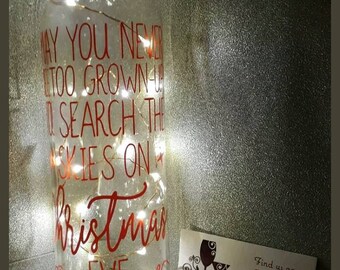 MAY YOU NEVER
TOO GROWN-UP
TO SEARCH THE
SKIES ON
Christmas
EVE
Find us